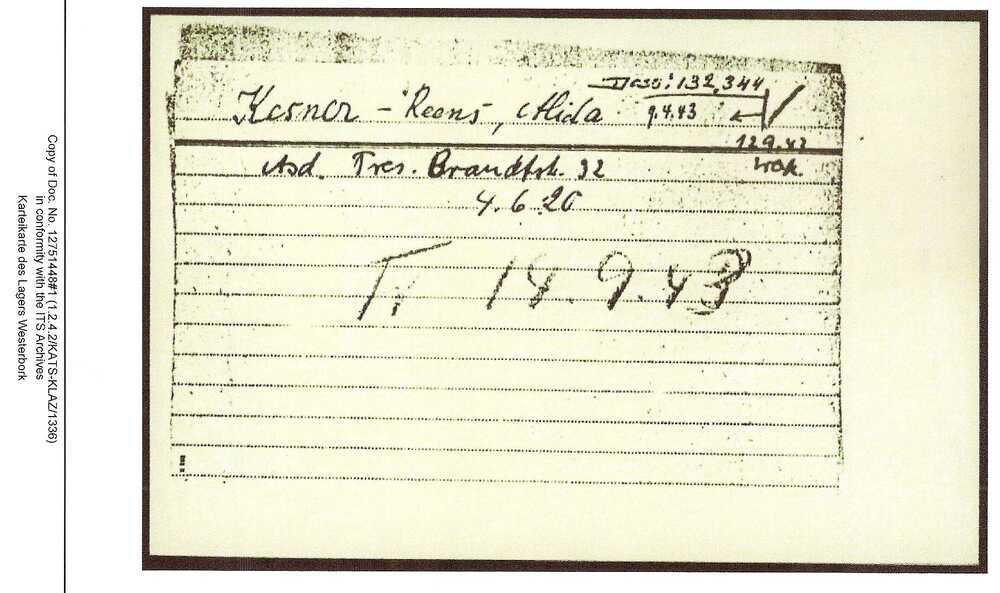 Kesner - Reens, Alida
132,344
9.4.43
Asd. Pres. Brandtstr. 32
4.6.20
Tr 14.9.43
Copy of Doc. No. 12751448#1 (1.2.4.2/KATS-KLAZ/1336)
in conformity with the ITS Archives
Karteikarte des Lagers Westerbork